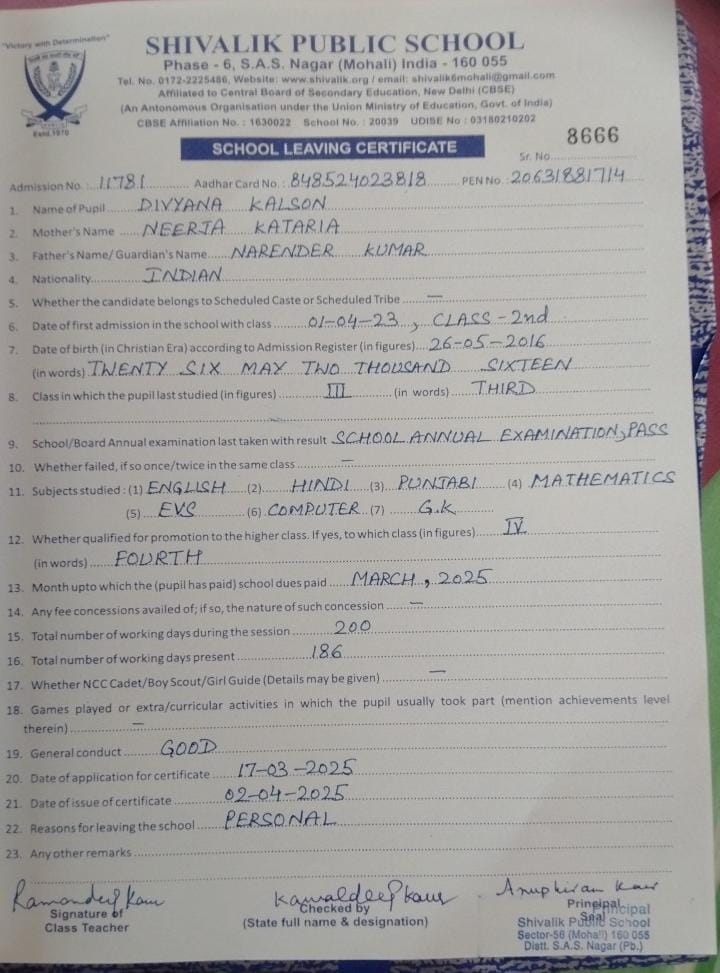 "Victory with Determination"
SHIVALIK PUBLIC SCHOOL
Phase - 6, S.A.S. Nagar (Mohali) India - 160 055
Tel. No. 0172-2225486, Website: www.shivalik.org / email: shivalik6mohali@gmail.com
Affiliated to Central Board of Secondary Education, New Delhi (CBSE)
(An Antonomous Organisation under the Union Ministry of Education, Govt. of India)
Estd.1970
CBSE Affiliation No. : 1630022 School No. : 20039 UDISE No : 03180210202
SCHOOL LEAVING CERTIFICATE
Sr. No. 8666
Admission No. 11781 Aadhar Card No. : 848524023818 PEN No. : 20631881714
1. Name of Pupil DIVYANA KALSON
2. Mother's Name NEERJA KATARIA
3. Father's Name/ Guardian's Name NARENDER KUMAR
4. Nationality INDIAN
5. Whether the candidate belongs to Scheduled Caste or Scheduled Tribe —
6. Date of first admission in the school with class 01-04-23, CLASS-2nd
7. Date of birth (in Christian Era) according to Admission Register (in figures) 26-05-2016
(in words) TWENTY SIX MAY TWO THOUSAND SIXTEEN
8. Class in which the pupil last studied (in figures) III (in words) THIRD
9. School/Board Annual examination last taken with result SCHOOL ANNUAL EXAMINATION, PASS
10. Whether failed, if so once/twice in the same class —
11. Subjects studied : (1) ENGLISH (2) HINDI (3) PUNJABI (4) MATHEMATICS
(5) EVS (6) COMPUTER (7) G.K
12. Whether qualified for promotion to the higher class. If yes, to which class (in figures) IV
(in words) FOURTH
13. Month upto which the (pupil has paid) school dues paid MARCH, 2025
14. Any fee concessions availed of; if so, the nature of such concession —
15. Total number of working days during the session 200
16. Total number of working days present 186
17. Whether NCC Cadet/Boy Scout/Girl Guide (Details may be given) —
18. Games played or extra/curricular activities in which the pupil usually took part (mention achievements level
therein) —
19. General conduct GOOD
20. Date of application for certificate 17-03-2025
21. Date of issue of certificate 02-04-2025
22. Reasons for leaving the school PERSONAL
23. Any other remarks
Ramandeep Kaur Kawaldeep Kaur Anupkiran Kaur
Signature of Checked by Principal
Class Teacher (State full name & designation) Seal
Principal
Shivalik Public School
Sector-56 (Mohali) 160 055
Distt. S.A.S. Nagar (Pb.)